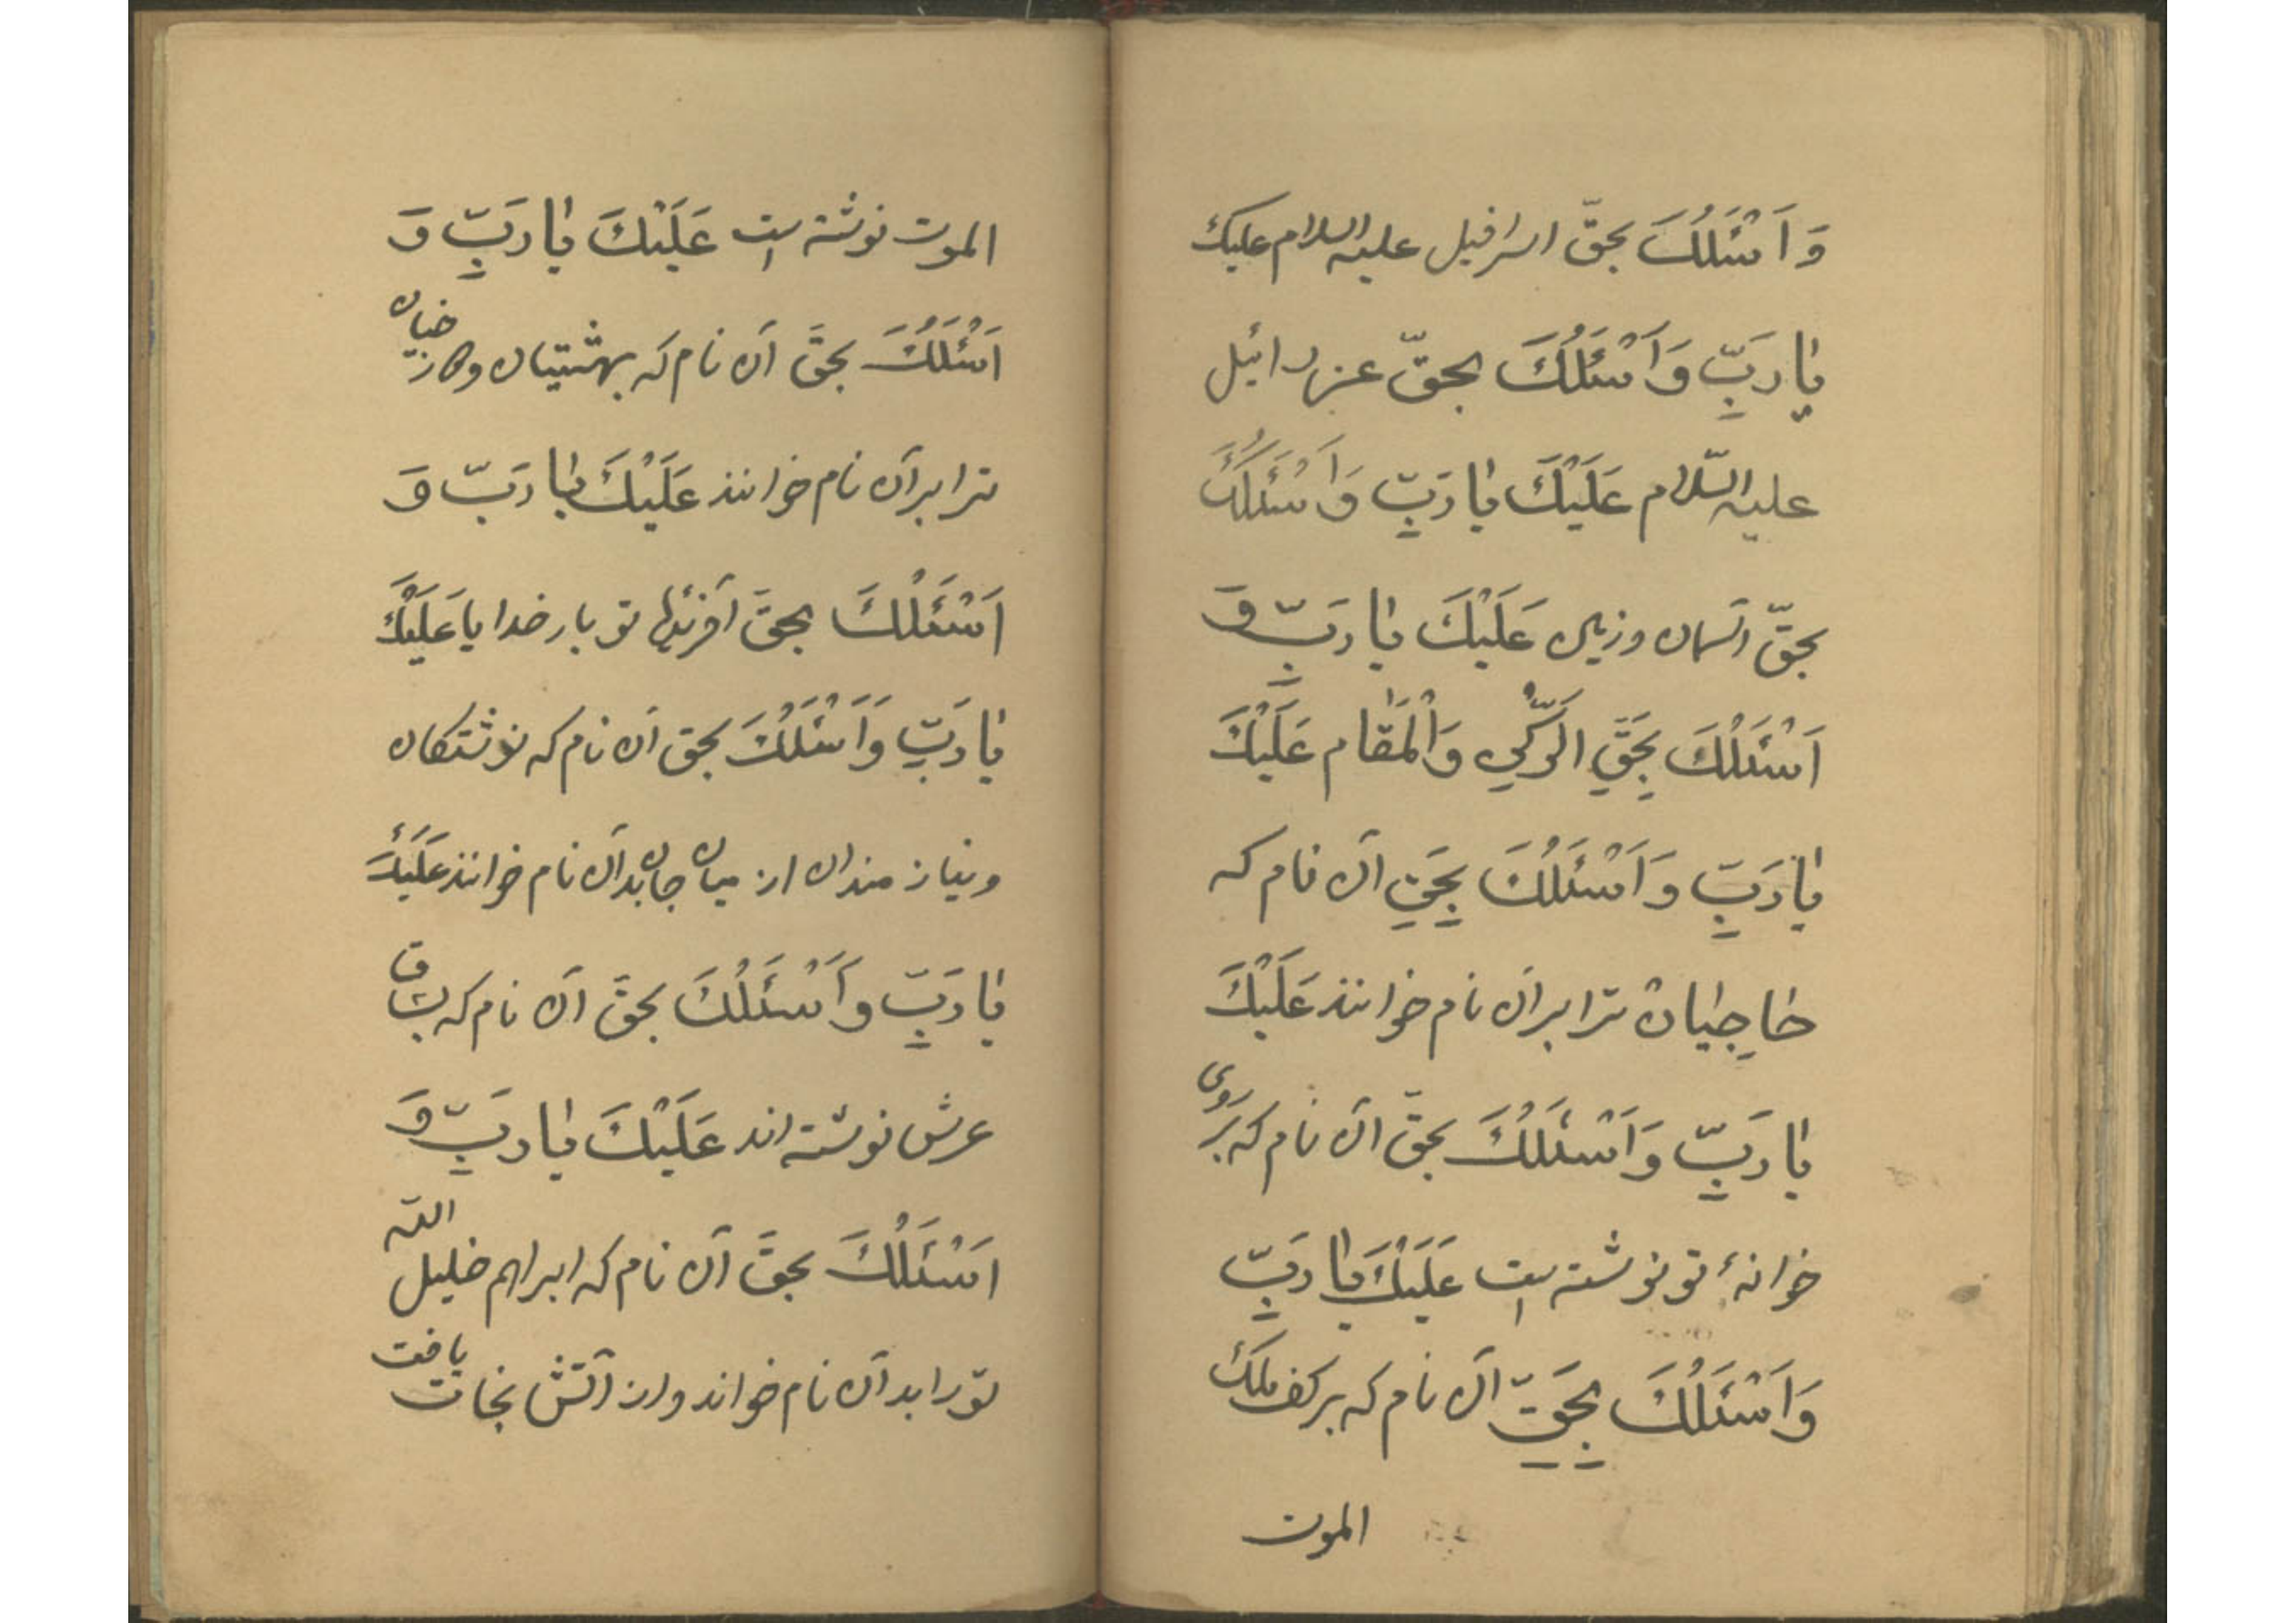 وَ اَسْئَلُكَ بحقّ اسرافیل علیه السلام علیک
یا رَبِّ وَ اَسْئَلُكَ بحقّ عزرائیل
علیه السّلام عَلَیْكَ یا رَبِّ وَ اَسْئَلُكَ
بحقّ آسمان و زمین عَلَیْكَ یا رَبِّ وَ
اَسْئَلُكَ بِحَقِّ الرُّكْنِ وَالْمَقام عَلَیْكَ
یا رَبِّ وَ اَسْئَلُكَ بِحَقِّ آن نام که
حاجِیان ترا بر آن نام خوانند عَلَیْكَ
یا رَبِّ وَ اَسْئَلُكَ بحقّ آن نام که بر روی
خوانهٔ تو نوشته است عَلَیْكَ یا رَبِّ
وَ اَسْئَلُكَ بِحَقِّ آن نام که بر کف ملك
الموت
الموت نوشته است عَلَیْكَ یا رَبِّ وَ
اَسْئَلُكَ بحقّ آن نام که بهشتیان و
ترا بر آن نام خوانند عَلَیْكَ یا رَبِّ وَ
اَسْئَلُكَ بحقّ تو بار خدایا عَلَیْكَ
یا رَبِّ وَ اَسْئَلُكَ بحق آن نام که
و نیازمندان از میان جان بدآن نام خوانند عَلَیْكَ
یا رَبِّ وَ اَسْئَلُكَ بحقّ آن نام که بساق
عرش نوشته‌اند عَلَیْكَ یا رَبِّ وَ
اَسْئَلُكَ بحقّ آن نام که ابراهیم خلیل الله
تو را بدآن نام خواند و از آتش نجات یافت